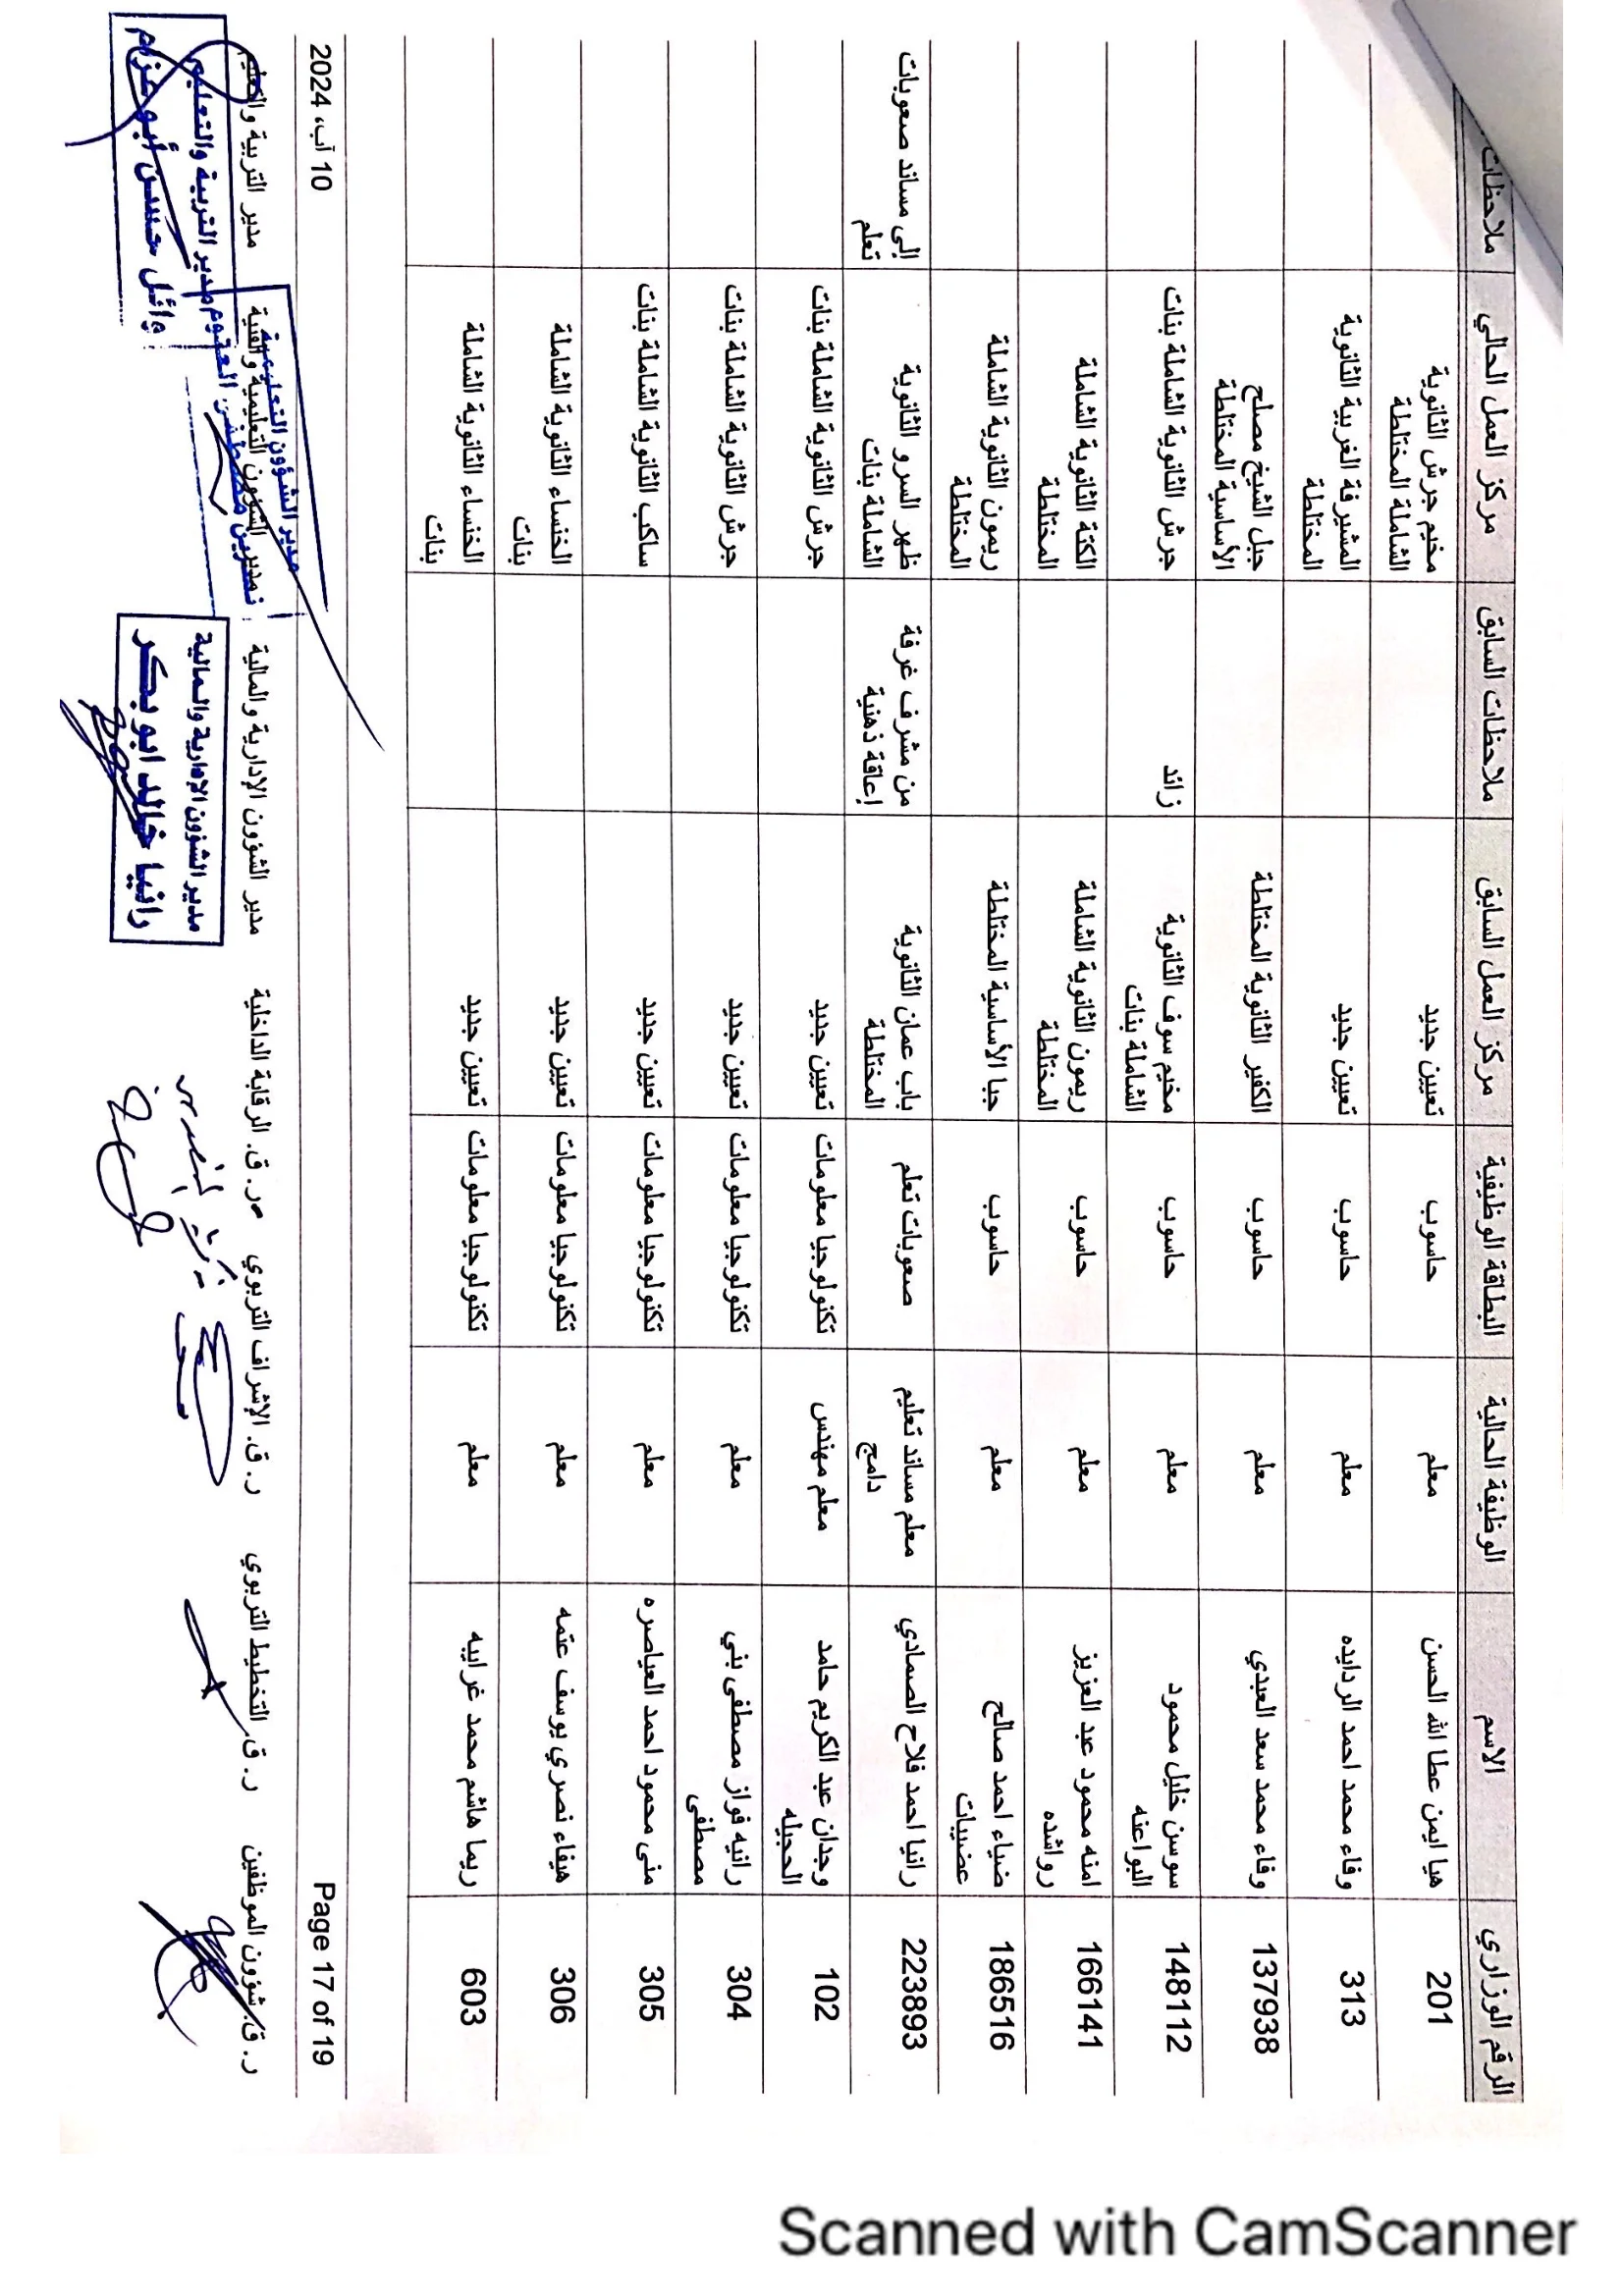 الرقم الوزاري الاسم الوظيفة الحالية البطاقة الوظيفية مركز العمل السابق ملاحظات السابق مركز العمل الحالي ملاحظات
201 هيا ايمن عطا الله الحسن معلم حاسوب تعيين جديد مخيم جرش الثانوية
الشاملة المختلطة
313 وفاء محمد احمد الردايده معلم حاسوب تعيين جديد المشيرفة الغربية الثانوية
المختلطة
137938 وفاء محمد سعد العبدي معلم حاسوب الكفير الثانوية المختلطة جبل الشيخ مصلح
الأساسية المختلطة
148112 سوسن خليل محمود معلم حاسوب مخيم سوف الثانوية زائد جرش الثانوية الشاملة بنات
البواعنه الشاملة بنات
166141 امنه محمود عبد العزيز معلم حاسوب ريمون الثانوية الشاملة الكتة الثانوية الشاملة
رواشده المختلطة المختلطة
186516 ضياء احمد صالح معلم حاسوب جبا الأساسية المختلطة ريمون الثانوية الشاملة
عضيبات المختلطة
223893 رانيا احمد فلاح الصمادي معلم مساند تعليم صعوبات تعلم باب عمان الثانوية من مشرف غرفة ظهر السرو الثانوية إلى مساند صعوبات
دامج المختلطة إعاقة ذهنية الشاملة بنات تعلم
102 وجدان عبد الكريم حامد معلم مهندس تكنولوجيا معلومات تعيين جديد جرش الثانوية الشاملة بنات
الحجيله
304 رانيه فواز مصطفى بني معلم تكنولوجيا معلومات تعيين جديد جرش الثانوية الشاملة بنات
مصطفى
305 منى محمود احمد العياصره معلم تكنولوجيا معلومات تعيين جديد ساكب الثانوية الشاملة بنات
306 هيفاء نصري يوسف عتمه معلم تكنولوجيا معلومات تعيين جديد الخنساء الثانوية الشاملة
بنات
603 ريما هاشم محمد غرايبه معلم تكنولوجيا معلومات تعيين جديد الخنساء الثانوية الشاملة
بنات
Page 17 of 19 10 آب، 2024
ر. ق. شؤون الموظفين ر. ق. التخطيط التربوي ر. ق. الإشراف التربوي ر. ق. الرقابة الداخلية مدير الشؤون الإدارية والمالية مدير الشؤون التعليمية والفنية مدير التربية والتعليم
مدير الشؤون الادارية والمالية
رانيا خالد ابو بكر
مدير الشؤون التعليمية
نسرين مصطفى العتوم
مدير التربية والتعليم
وائل حسن أبو عزام
Scanned with CamScanner